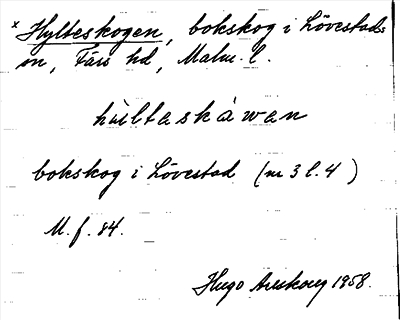 × Hylteskogen, bokskog i Lövestads
sn, Färs hd, Malm. l.
hùltaskàwan
bokskog i Lövestad (nr 3 l. 4)
M. f. 84.
Hugo Areskoug 1958.